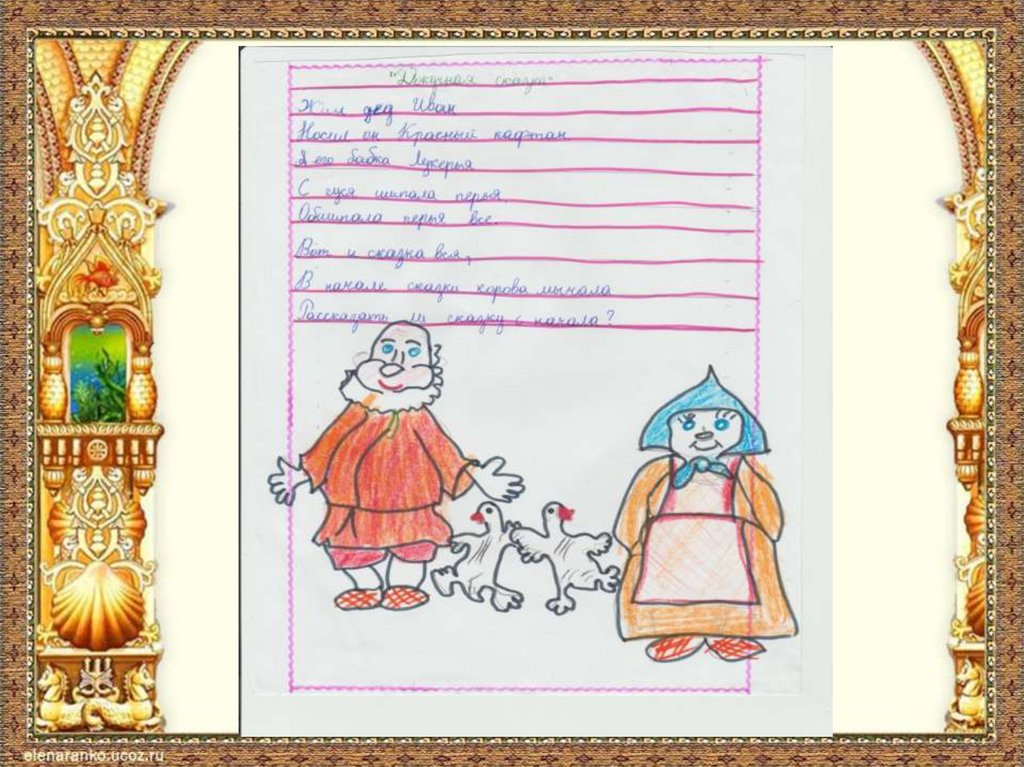 "Докучная сказка"
Жил дед Иван
Носил он Красный кафтан.
А его бабка Лукерья
С гуся щипала перья.
Общипала перья все.
Вот и сказка вся,
В начале сказки корова мычала
Рассказать ли сказку с начала?
elenaranko.ucoz.ru